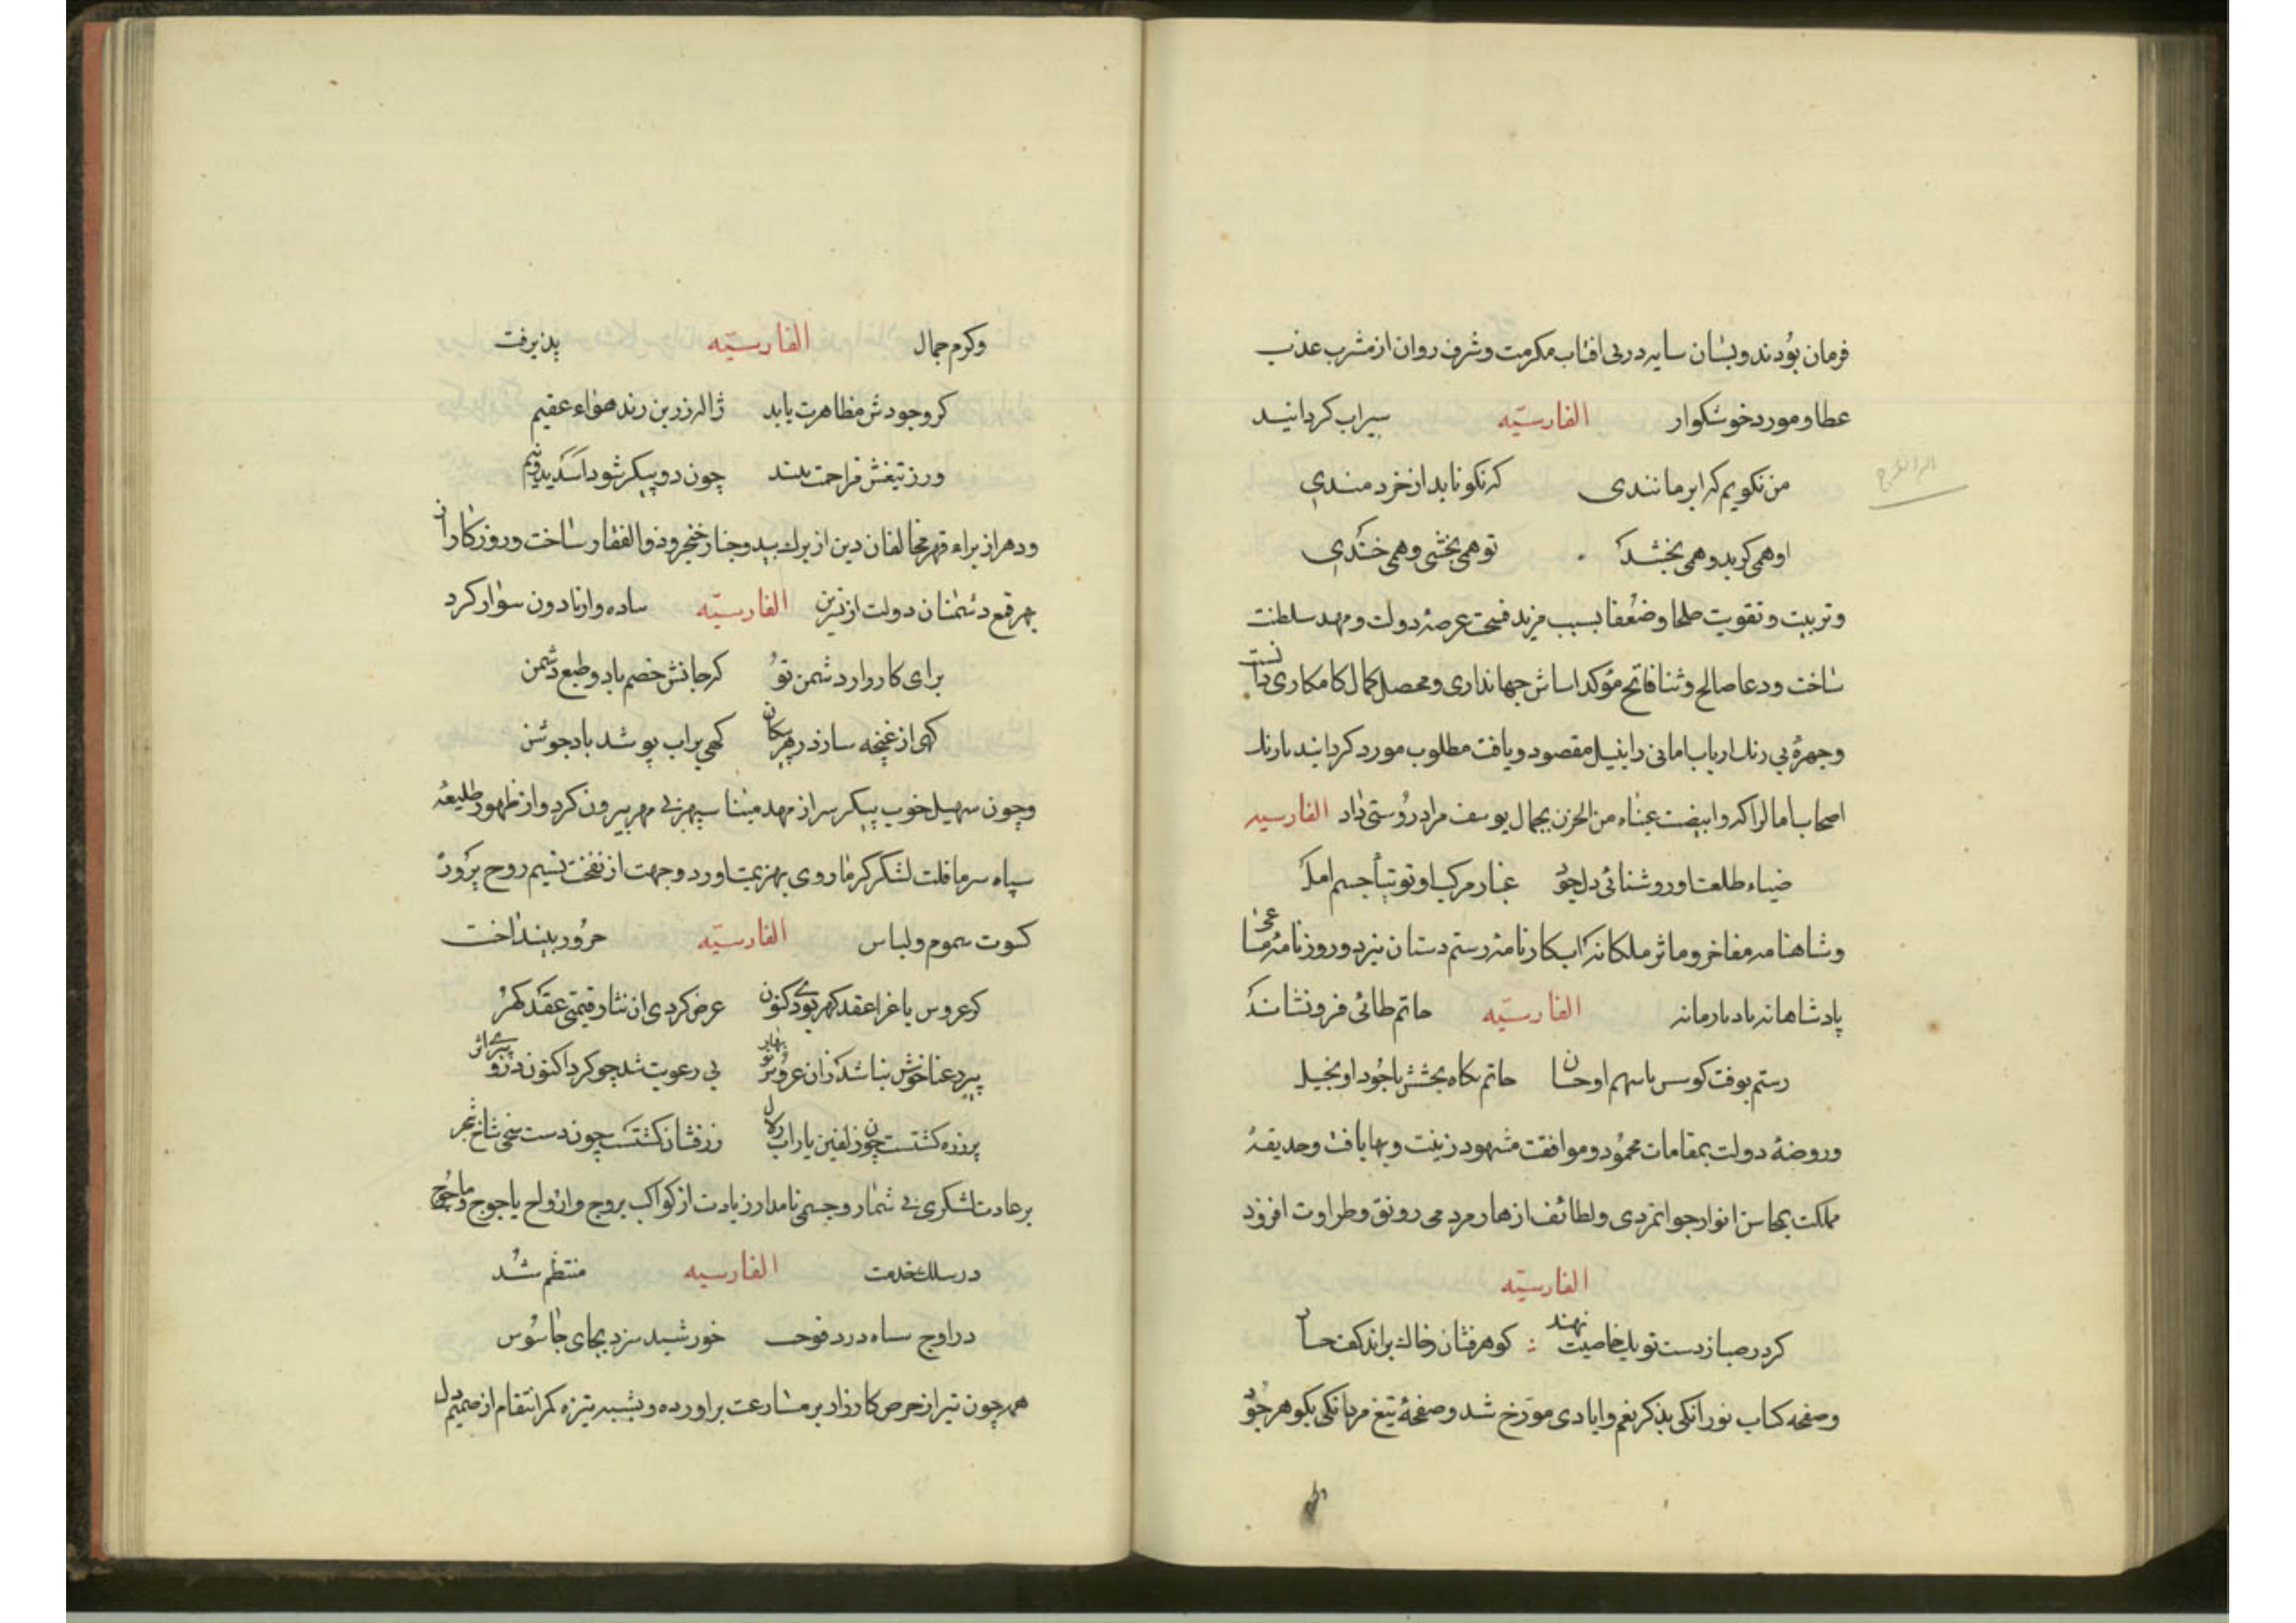 فرمان بودند و بسان سایه در پی افتاب مکرمت و شرف روان از مشرب عذب
عطا و مورد خوشکوار الفارسیّه سیراب کردانیـد
من نکویم که ابر مانندی که نکو ناید از خردمندی
او همی کرید و همی بخشد تو همی بخشی و همی خندی
و تربیت و تقویت صلحا و ضعفا بسبب مزید فسحت عرصۀ دولت و مهد سلطنت
ساخت و دعا صالح و ثنا فاتح مؤکد اساس جهانداری و محصل کمال کامکاری دانست
و چهرۀ بی رنک ارباب امانی را بنیل مقصود و یافت مطلوب مورد کردانید
اصحاب امال را که وابیضت عیناه من الحزن بجمال یوسف مراد روستی داد الفارسیه
ضیاء طلعت او روشنائی دل غبار مرکب او توتیا جسم امل
و شاهنامه مفاخر و ماثر ملکانه اب کارنامۀ رستم دستان ببرد و روزنامۀ
پادشاهانه الفارسیّه حاتم طائی فرونشاند
رستم بوقت کوسس با سهم او حاتم بکاه بخشش با جود او بخیل
و روضۀ دولت بمقامات محمود و موافقت مشهود زینت و بها یافت و حدیقۀ
مملکت بمحاسن انوار جوانمردی و لطائف ازهار مردمی رونق و طراوت افزود
الفارسیّه
کر در صبا ز دست تو یک خاصیت نهند کوهر فشان ز خاک براند کف
و صفحه کتاب نورانکی بذکر نعم و ایادی مورّخ شد و صفحۀ تیغ مردانکی بکوهر جود
و کرم جمال الفارسیّه پذیرفت
کر وجودش مظاهرت یابد ژاله زرین زند هواء عقیم
ور ز تیغش مزاحمت بیند چون دو پیکر شود اسد بدونیم
و دهر از براء قهر مخالفان دین از برک بید و چنار خنجر و ذوالفقار ساخت و روزکار از
بهر قمع دشمنان دولت الفارسیّه ساده وار نادون سوار کرد
برای کارزار دشمن تو که جانش خصم باد و طبع دشمن
کهی از غنچه سازد زهر پیکان کهی بر اب پوشد باد جوشن
و چون سهیل خوب پیکر سر از مهد مینا سپهر بی مهر بیرون کرد و از ظهور طلیعۀ
سپاه سرما قلت لشکر کرما روی بهزیمت اورد و جهت از نفخت نسیم روح پرور
کسوت سموم و لباس الفارسیّه حرور بینداخت
کر عروس باغ را عقد کهر بودی کنون عرض کردی ان نثار قیمتی عقد کهر
پیر رعنا خوش نباشد زان عروس نوبهار بی رعونت شد چو کرد اکنون درو پیری اثر
پر زره کشتست چون زلفین یار اب زلال زرفشان کشتست چون دست سخی شاخ شجر
بر عادت لشکری بی شمار و حشمی نامدار زیادت از کواکب بروج و افواج یاجوج و ماجوج
در سلک خدمت الفارسیه منتظم شد
در اوج خورشید سزد بجای جاسوس
همه چون تیر از حرص کارزار پر مسارعت براورده و بشبه نیزه کمر انتقام از صمیم دل